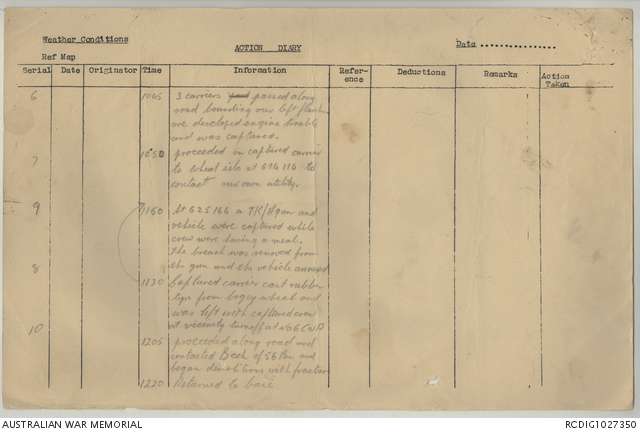 Weather Conditions
ACTION DIARY
Date
Ref Map
Serial Date Originator Time Information Refer-ence Deductions Remarks Action Taken
6 1045 3 carriers passed along
road bounding our left flank
one developed engine trouble
and was captured.
7 1050 proceeded in captured carrier
to wheat silo at 616116 to
contact our own utility.
9 1160 At 625166 a TK/A gun and
vehicle were captured while
crew were having a meal.
The breach was removed from
the gun and the vehicle
8 1130 Captured carrier cast rubber
tyre from bogey wheel and
was left with captured crew
at vicinity turnoff at
10 1205 proceeded along road and
contacted Bech of 56 Pan and
began demolitions with
1220 Returned to base
AUSTRALIAN WAR MEMORIAL
RCDIG1027350